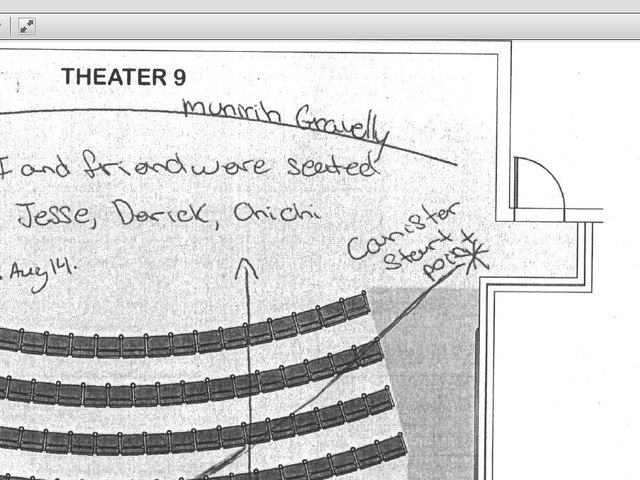 THEATER 9
munirih Gravelly
I and friend were seated
Jesse, Derick, Onichi
Aug 14.
Canister
start
point